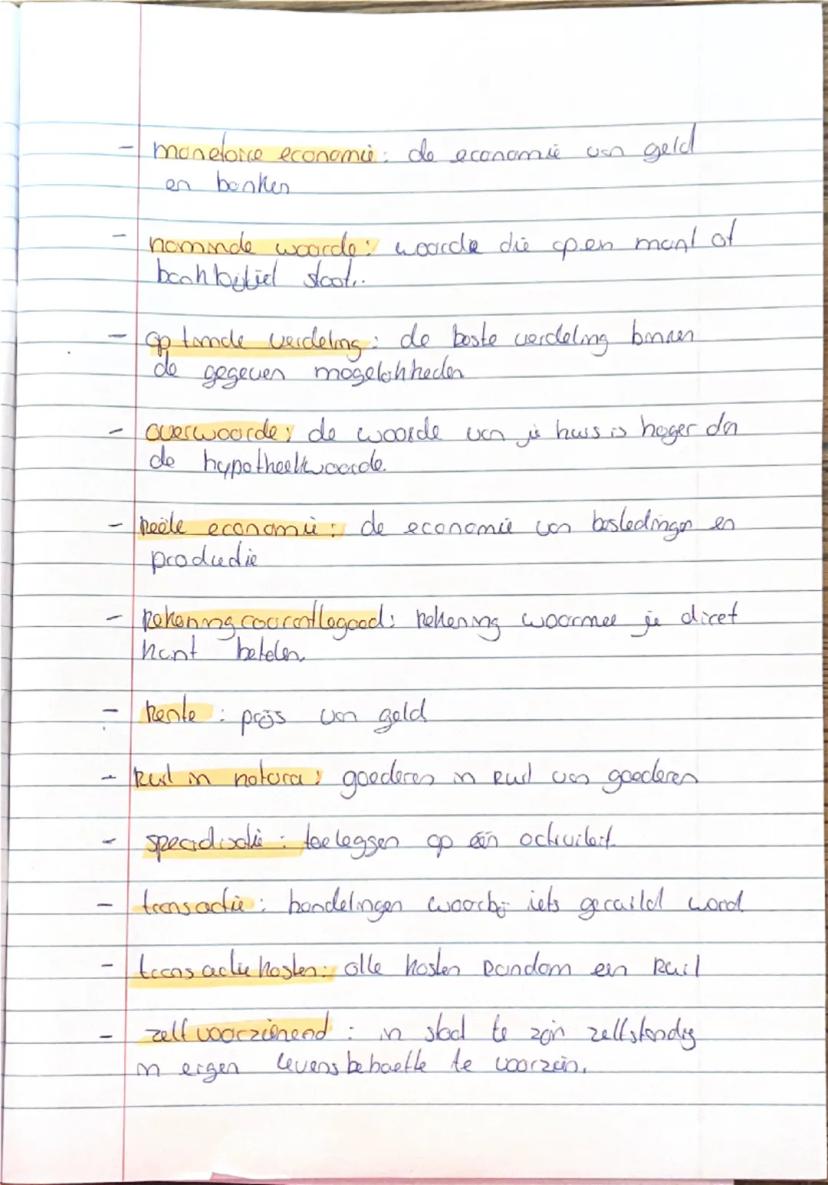 - monetaire economie: de economie van geld
en banken
- nominale waarde: waarde die op een munt of
bankbiljet staat..
- optimale verdeling: de beste verdeling binnen
de gegeven mogelijkheden
- overwaarde: de waarde van je huis is hoger dan
de hypotheekwaarde.
- Reële economie: de economie van bestedingen en
productie
- Rekening couranttegoed: Rekening waarmee je direct
kunt betalen.
- Rente: prijs van geld
- Ruil in natura: goederen in Ruil van goederen
- specialisatie: toeleggen op één activiteit.
- transactie: handelingen waarbij iets geruild word
- transactie kosten: alle kosten Rondom een Ruil
- zelfvoorzienend: in staat te zijn zelfstandig
in eigen levensbehoefte te voorzien.